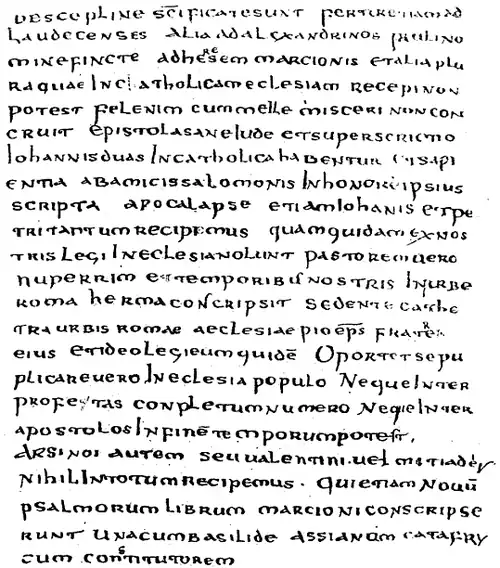 DESCEPLINE SCIFICATESUNT FERTURETIAMAD
LAUDECENSES ALIAADALEXANDRINOS PAULINO
MINEFINCTE ADHEREsEM MARCIONIS ETALIAPLU
RAQUAE INCATHOLICAMECLESIAM RECEPINON
POTEST FELENIM CUMMELLE MISCERI NONCON
CRUIT EPISTOLASANEIUDE ETSUPERSCRICTIO
IOHANNISDUAS INCATHOLICAHABENTUR ETSAPI
ENTIA ABAMICISSALOMONIS INHONOREIPSIUS
SCRIPTA APOCALAPSE ETIAMIOHANIS ETPE
TRITANTUMRECIPEMUS QUAMQUIDAMEXNOS
TRISLEGI INECLESIANOLUNT PASTOREMUERO
NUPERRIM ETTEMPORIBUSNOSTRIS INURBE
ROMA HERMACONSCRIPSIT SEDENTECATHE
TRAURBISROMAE AECLESIAEPIOEPS FRATER
EIUS ETIDEOLEGIEUMQUIDE OPORTETSEPU
PLICAREUERO INECLESIAPOPULO NEQUEINTER
PROFETAS CONPLETUMNUMERO NEQEINTER
APOSTOLOSINFINETEMPORUMPOTEST.
ARSINOI AUTEM SEUUALENTINI.UEL MITIADES
NIHILINTOTUMRECIPEMUS. QUIETIAMNOUU
PSALMORUMLIBRUM MARCIONICONSCRIPSE
RUNT UNACUMBASILIDE ASSIANOM CATAFRY
CUM CONSTITUTOREM